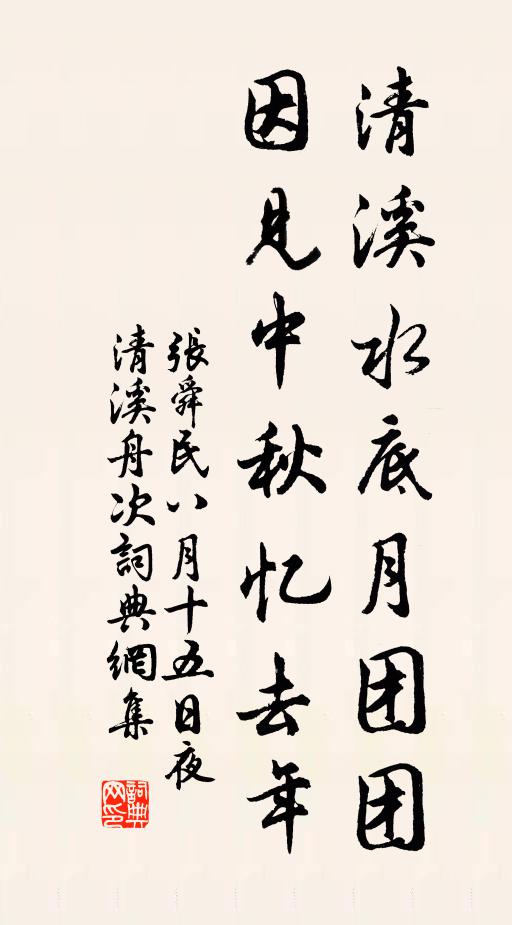 清溪水底月团团
因见中秋忆去年
張舜民八月十五日夜
清溪舟次詞典網集
詞典
网印